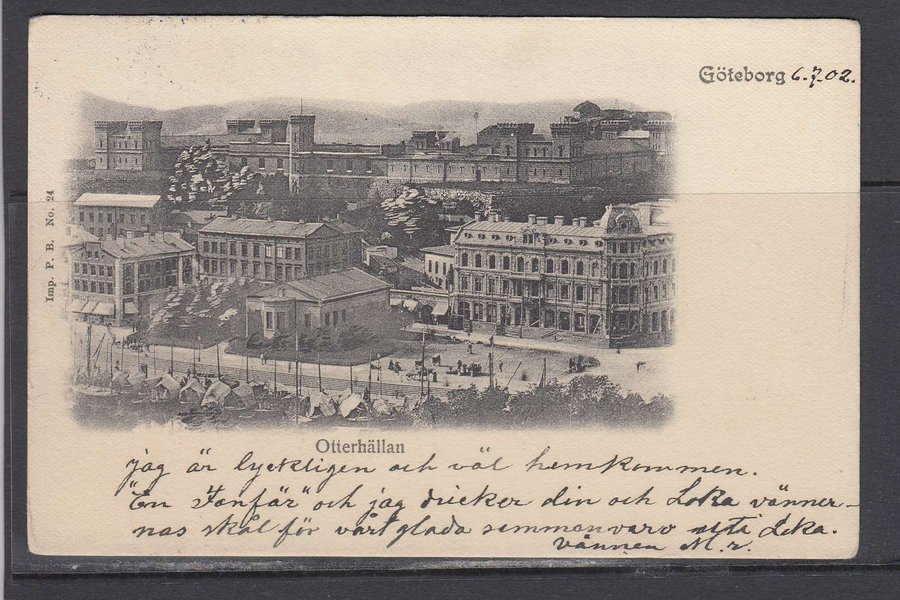 Göteborg 6.7.02.
Imp. P. B. No. 24
Otterhällan
jag är lyckligen och väl hemkommen.
"En Fanfär" och jag dricker din och Loka vänner-
nas skål för vårt glada sammanvaro Loka.
vännen M. r.